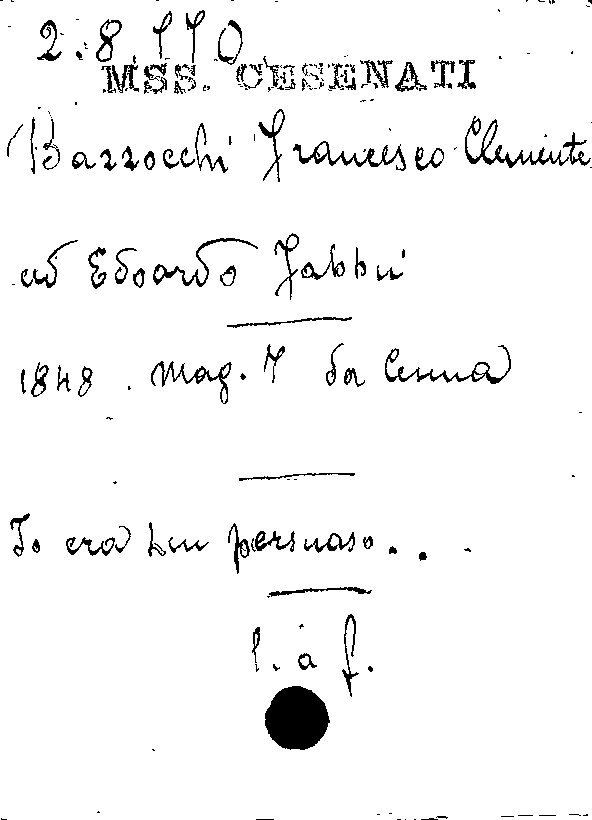 2.8.170
MSS. CESENATI
Bazzocchi Francesco Clemente
ad Edoardo Fabbri
1848. Mag. 7 da Cesena
Io era ben persuaso...
l. a f.